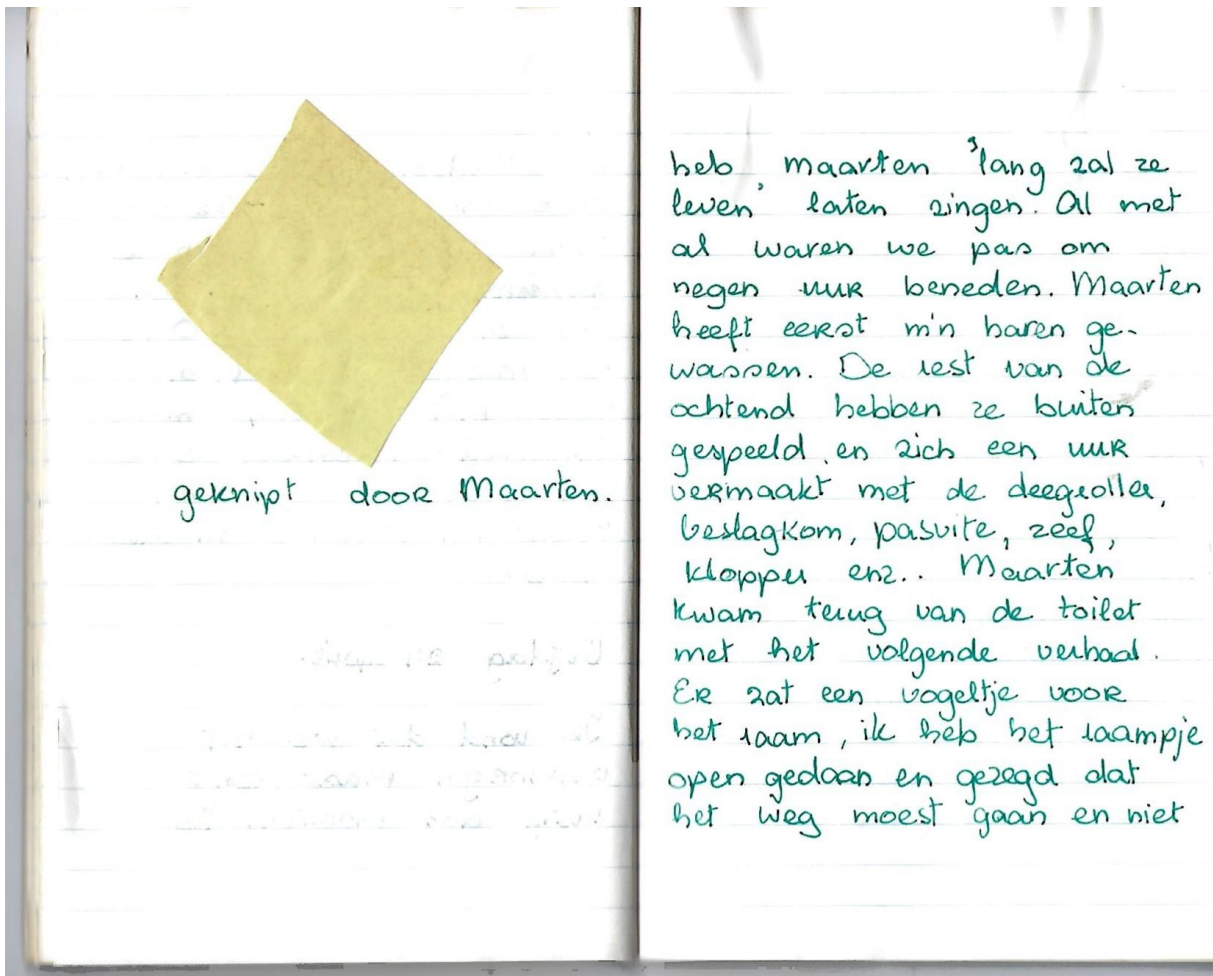 geknipt door Maarten.
heb, maarten 'lang zal ze
leven' laten zingen. Al met
al waren we pas om
negen uur beneden. Maarten
heeft eerst m'n haren ge-
wassen. De rest van de
ochtend hebben ze buiten
gespeeld en zich een uur
vermaakt met de deegroller,
beslagkom, pasvite, zeef,
klopper enz.. Maarten
kwam terug van de toilet
met het volgende verhaal.
Er zat een vogeltje voor
het raam, ik heb het raampje
open gedaan en gezegd dat
het weg moest gaan en niet